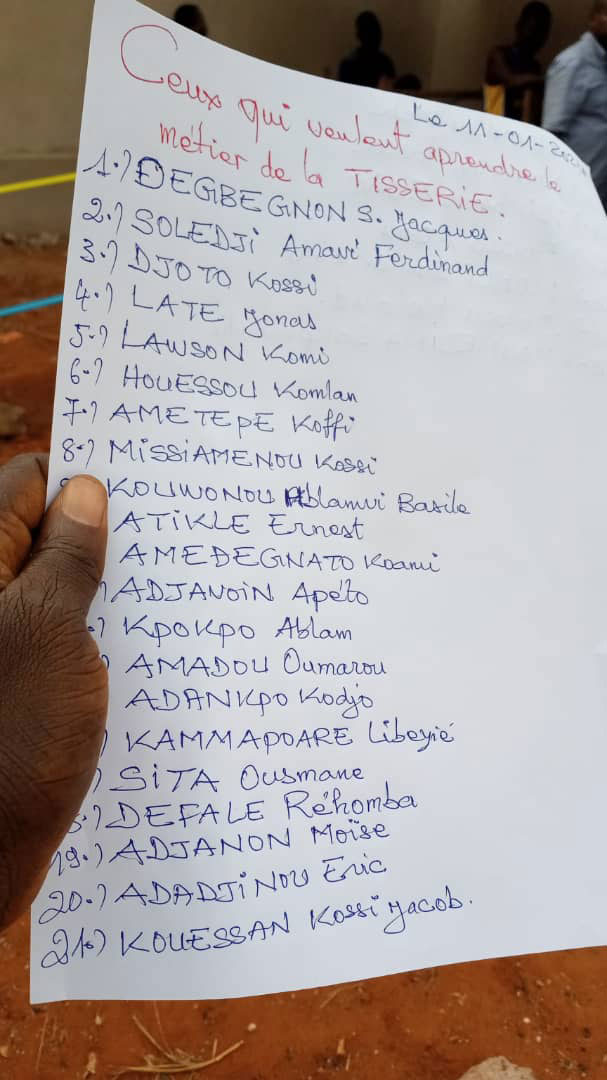 Le 11-01-202
Ceux qui veulent aprendre le
métier de la TISSERIE.
1.) DEGBEGNON S. Jacques.
2.) SOLEDJi Amavi Ferdinand
3.) DJOTO Kossi
4.) LATE Jonas
5.) LAWSON Komi
6.) HOUESSOU Komlan
7.) AMETEPE Koffi
8.) MiSSiAMENOU Kossi
KOUWONOU Ablamvi Basile
ATiKLE Ernest
AMEDEGNATO Koami
) ADJAVOiN Apéto
.) KPOKPO Ablam
) AMADOU Oumarou
ADANKPO Kodjo
) KAMMAPOARE Libeyié
) SiTA Ousmane
8.) DEFALE Réhomba
19.) ADJANON Moïse
20.) ADADJiNOU Eric
21.) KOUESSAN Kossi Jacob.